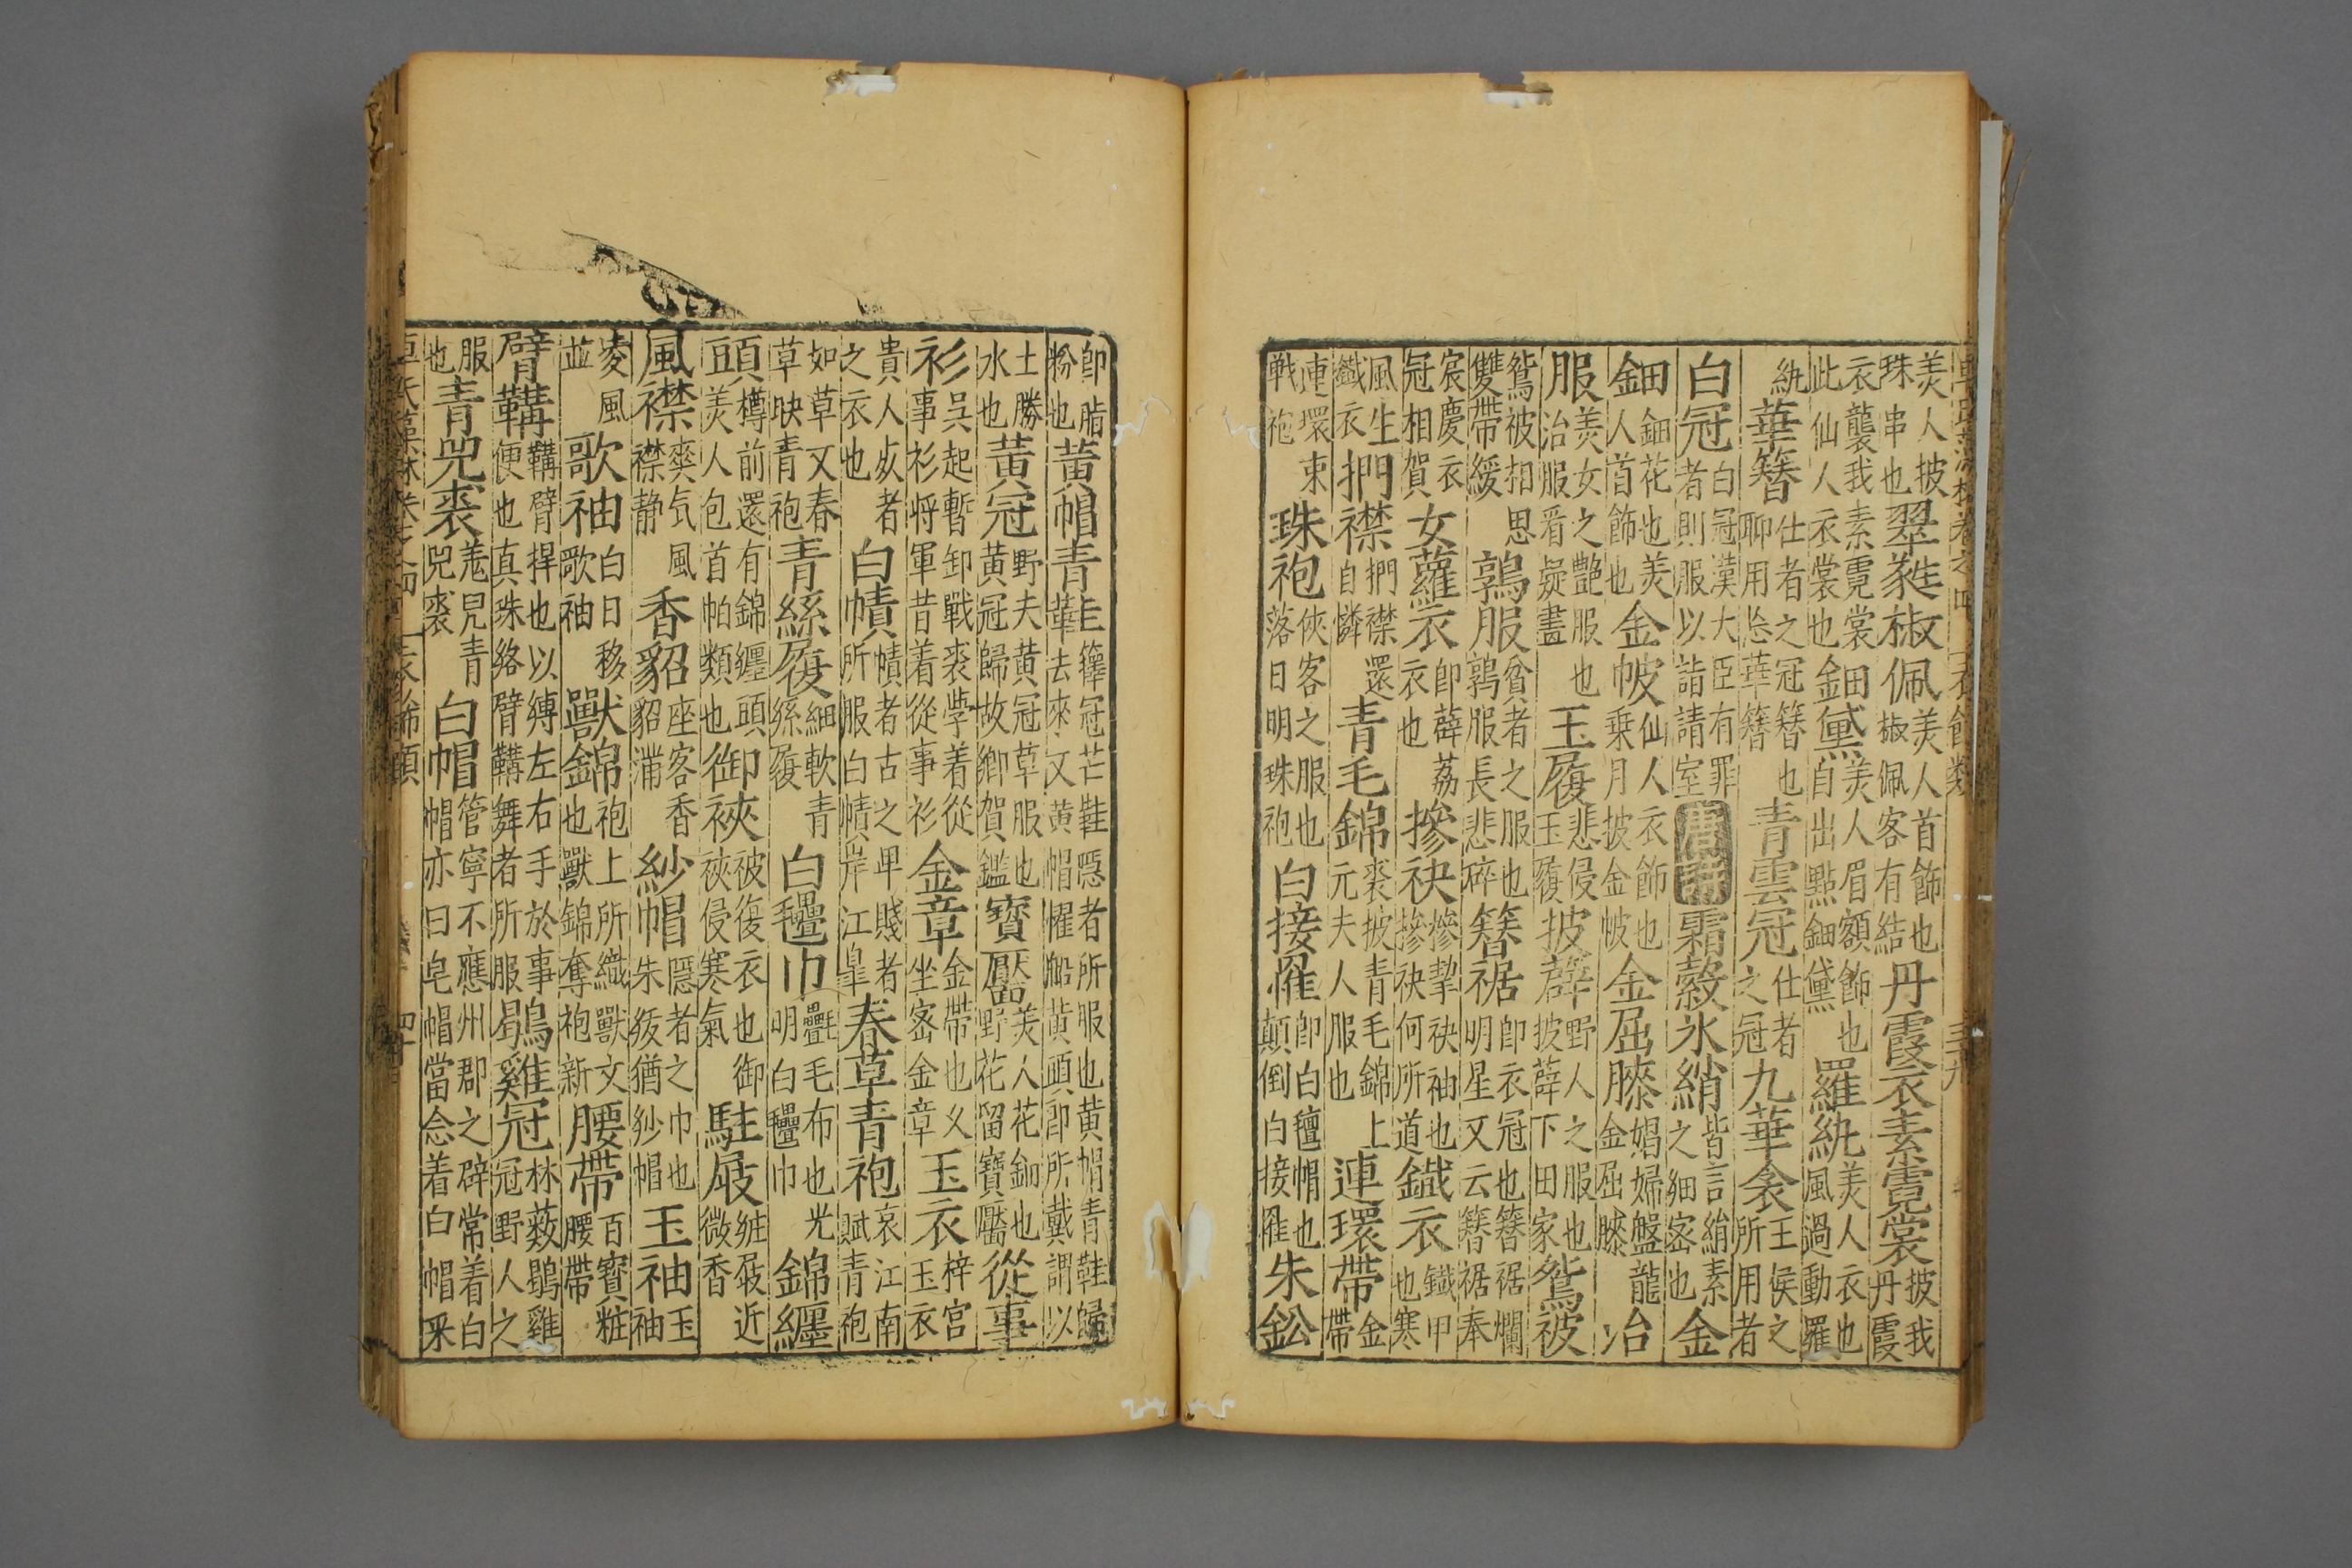 卓氏藻林卷之四 衣飾類 三十九
美人披珠串也翠蕤椒佩美人首飾也椒佩客有結丹霞衣素霓裳披我丹霞
衣襲我素霓裳此仙人衣裳也鈿黛美人眉額飾也自出點鈿黛羅紈美人衣也風過動羅
紈華簪仕者之冠簪也聊用忘華簪青雲冠仕者之冠九華衾王侯之所用者
白冠白冠漢大臣有罪者則服以詣請室唐詩霜縠氷綃皆言綃素之細密也金
鈿鈿花也美人首飾也金帔仙人衣飾也乗月披金帔金屈膝娼婦盤龍金屈膝冶
服美女之艷服也冶服看疑畫玉履悲侵玉履披薜野人之服也披薜下田家鴛被
鴛被扣思雙帶緩鶉服貧者之服也鶉服長悲碎簪裾卽衣冠也簪裾爛明星又云簪裾奉
宸慶衣冠相賀女蘿衣卽薜荔衣也摻袂摻摯袂袖也摻袂何所道鐵衣鐵甲也寒
風生鐵衣捫襟捫襟還自憐青毛錦裘披青毛錦上元夫人服也連環帶金帶
連環束戰袍珠袍俠客之服也落日明珠袍白接䍦卽白氊帽也顛倒白接䍦朱鈆
卽脂粉也黄帽青鞋籜冠芒鞋隱者所服也黄帽青鞋歸去來又黄帽懼船黄頭卽所戴謂以
土勝水也黄冠野夫黄冠草服也黄冠歸故鄉賀鑑寳靨美人花鈿也野花留寳靨從事
衫吳起暫卸戰裘學着從事衫将軍昔着從事衫金章金帶也义坐密金章玉衣梓宫玉衣
貴人死者之衣也白幘幘者古之卑賤者所服白幘岸江臯春草青袍哀江南賦青袍
如草又春草映青袍青絲履細軟青絲履白氎巾氎毛布也光明白氎巾錦纏
頭樽前還有錦纏頭美人包首帕類也御裌被復衣也御裌侵寒氣駐屐屐近微香
風襟爽气風襟静香貂座客香貂滿紗帽隱者之巾也朱紱猶紗帽玉袖玉袖
凌風並歌袖白日移歌袖獸錦袍上所織獸文也獸錦奪袍新腰帶百寳粧腰帶
臂鞲鞲臂捍也以縛左右手於事便也真珠絡臂鞲舞者所服鶡雞冠林薮鶡雞冠野人之
服也青兕裘羗兒青兕裘白帽管寧不應州郡之辟常着白帽亦曰皂帽當念着白帽釆
卓氏藻林卷之四 衣飾類 四十